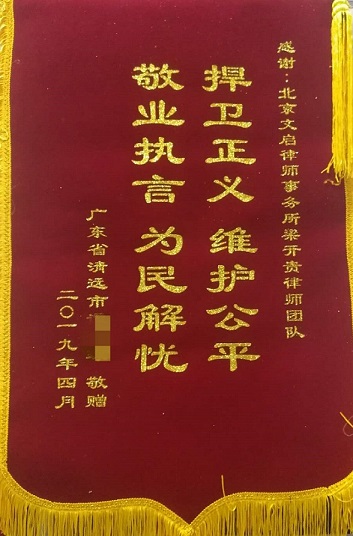 感谢：北京文启律师事务所梁开贵律师团队
捍卫正义 维护公平
敬业执言 为民解忧
广东省清远市 敬赠
二〇一九年四月